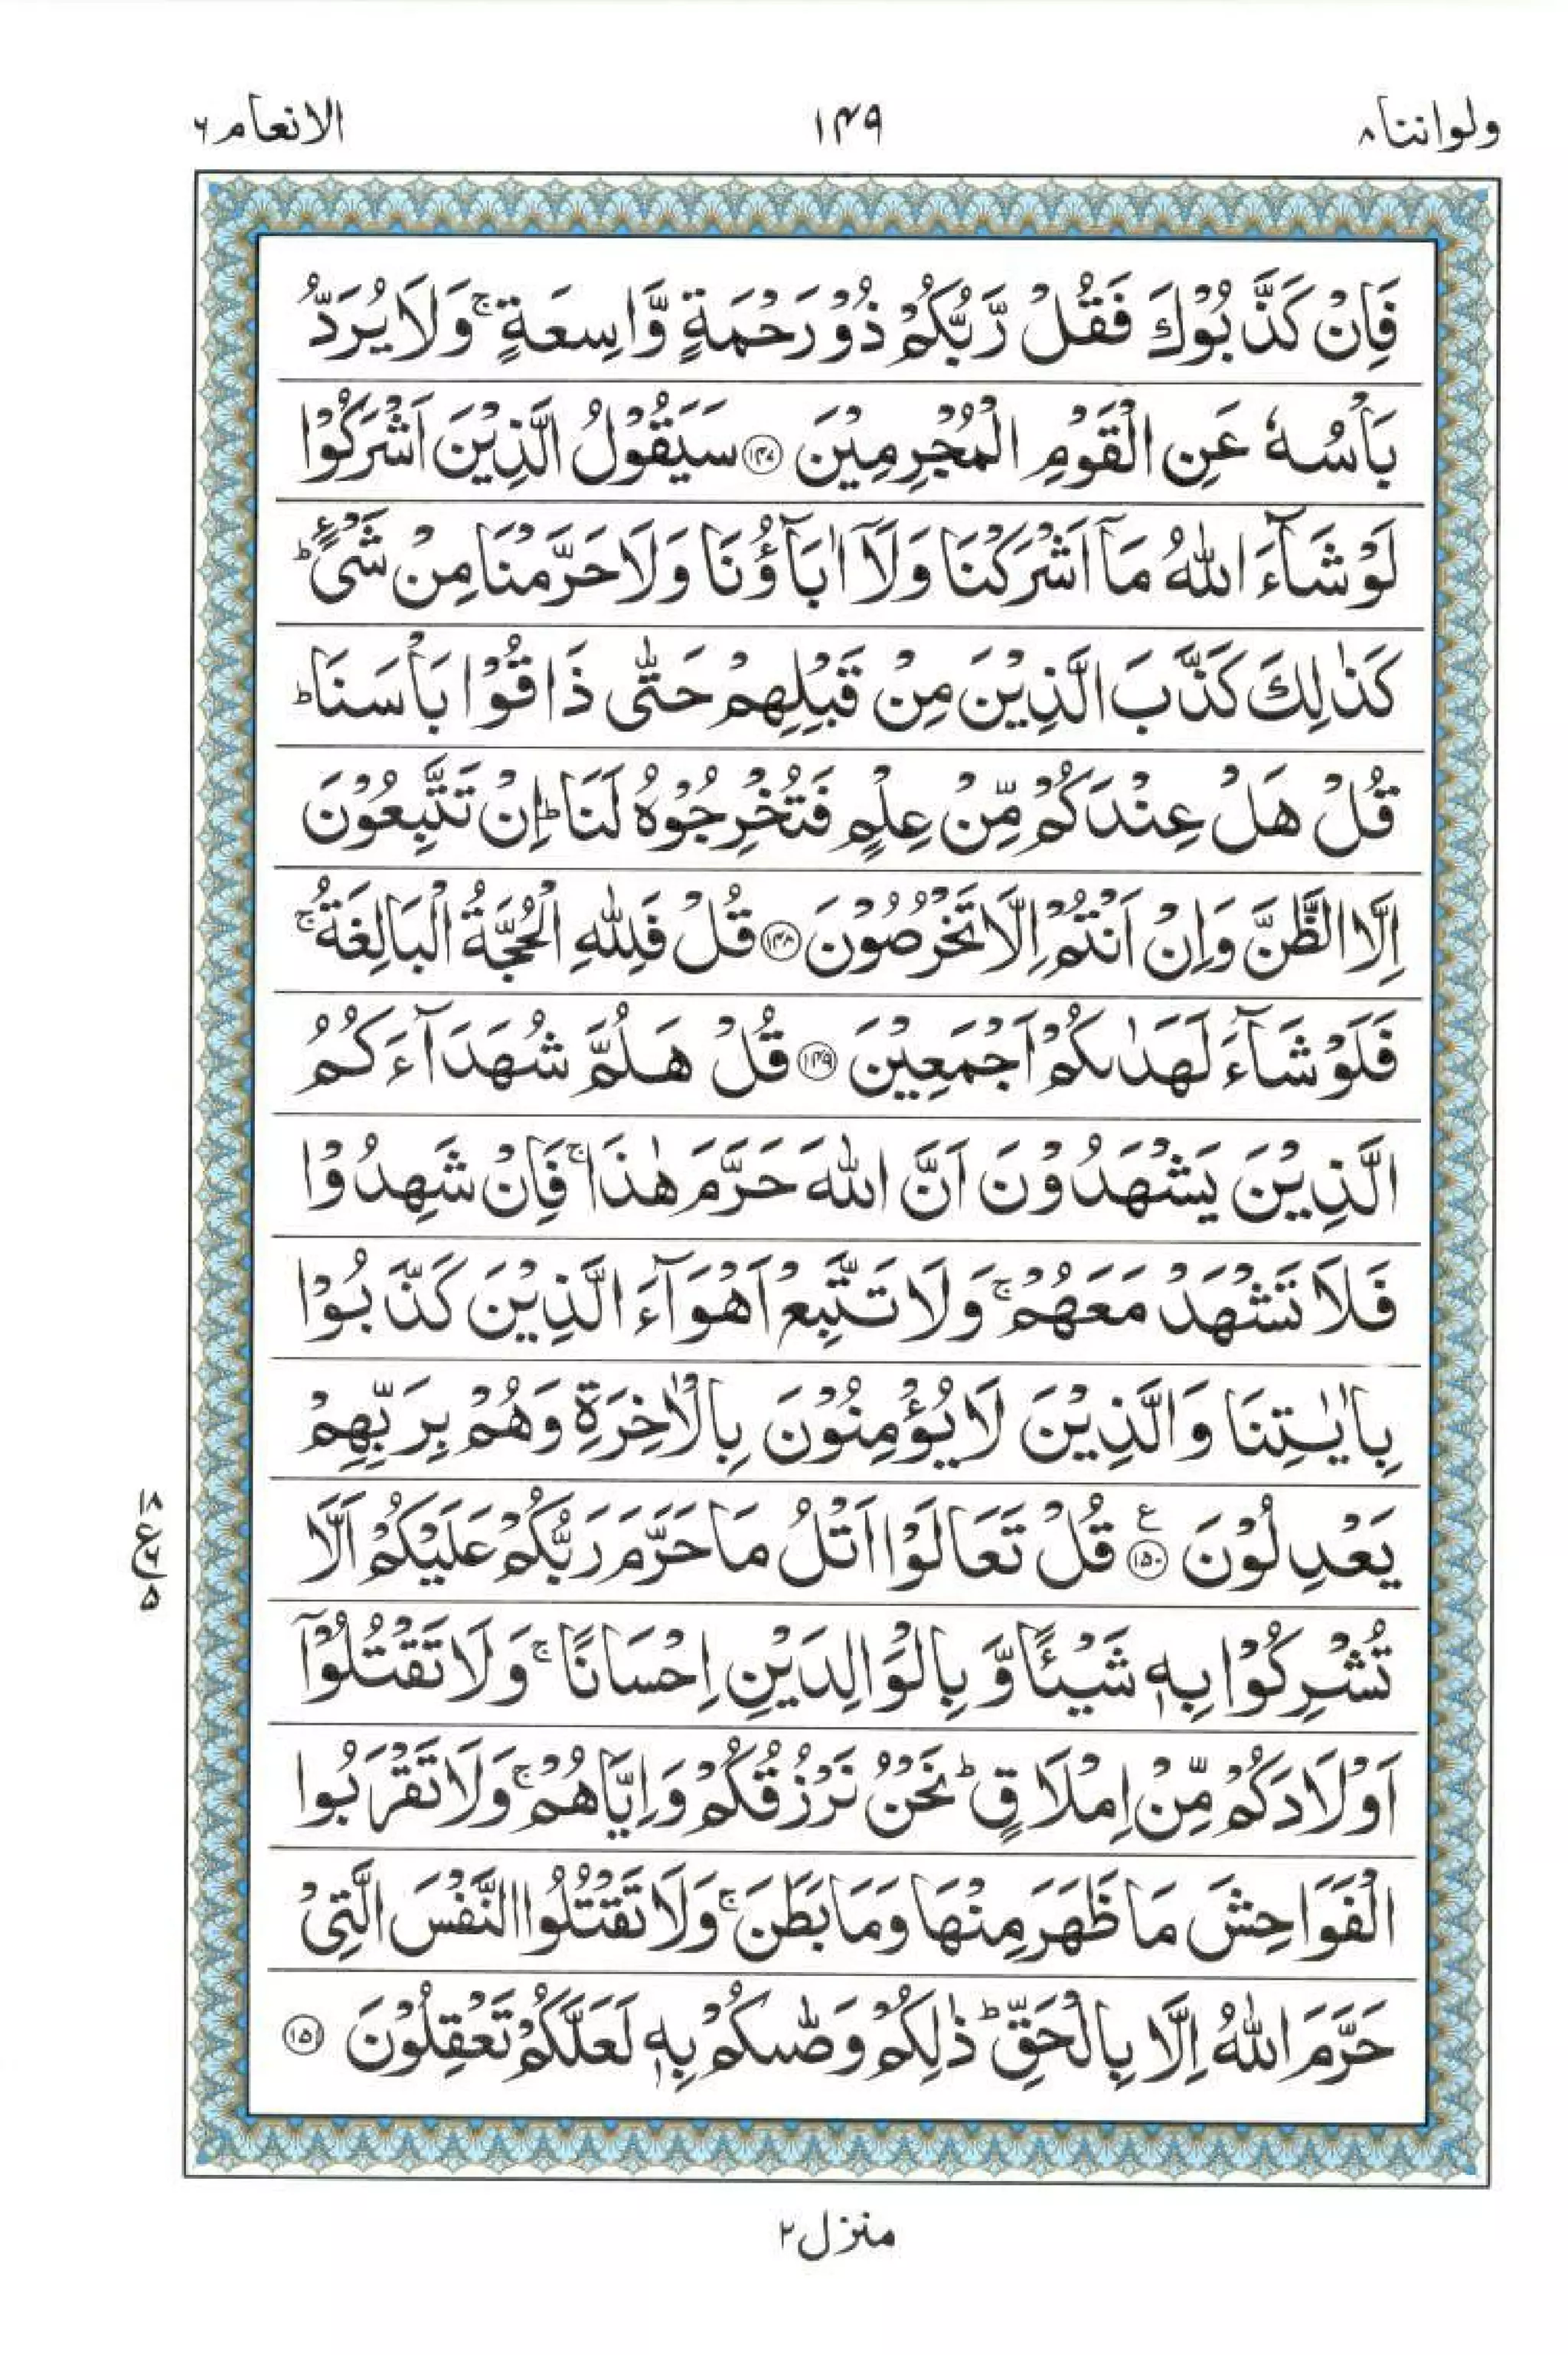 ولواننا ۸
۱۴۹
الانعام ۶
فَاِنْ كَذَّبُوْكَ فَقُلْ رَّبُّكُمْ ذُوْ رَحْمَةٍ وَّاسِعَةٍ ۚ وَلَا يُرَدُّ
بَاْسُهٗ عَنِ الْقَوْمِ الْمُجْرِمِيْنَ ﴿۱۴۷﴾ سَيَقُوْلُ الَّذِيْنَ اَشْرَكُوْا
لَوْ شَآءَ اللّٰهُ مَآ اَشْرَكْنَا وَلَآ اٰبَآؤُنَا وَلَا حَرَّمْنَا مِنْ شَیْءٍ ؕ
كَذٰلِكَ كَذَّبَ الَّذِيْنَ مِنْ قَبْلِهِمْ حَتّٰى ذَاقُوْا بَاْسَنَا ؕ
قُلْ هَلْ عِنْدَكُمْ مِّنْ عِلْمٍ فَتُخْرِجُوْهُ لَنَا ؕ اِنْ تَتَّبِعُوْنَ
اِلَّا الظَّنَّ وَاِنْ اَنْتُمْ اِلَّا تَخْرُصُوْنَ ﴿۱۴۸﴾ قُلْ فَلِلّٰهِ الْحُجَّةُ الْبَالِغَةُ ۚ
فَلَوْ شَآءَ لَهَدٰىكُمْ اَجْمَعِيْنَ ﴿۱۴۹﴾ قُلْ هَلُمَّ شُهَدَآءَكُمُ
الَّذِيْنَ يَشْهَدُوْنَ اَنَّ اللّٰهَ حَرَّمَ هٰذَا ۚ فَاِنْ شَهِدُوْا
فَلَا تَشْهَدْ مَعَهُمْ ۚ وَلَا تَتَّبِعْ اَهْوَآءَ الَّذِيْنَ كَذَّبُوْا
بِاٰيٰتِنَا وَالَّذِيْنَ لَا يُؤْمِنُوْنَ بِالْاٰخِرَةِ وَهُمْ بِرَبِّهِمْ
يَعْدِلُوْنَ ﴿۱۵۰﴾ ع قُلْ تَعَالَوْا اَتْلُ مَا حَرَّمَ رَبُّكُمْ عَلَيْكُمْ اَلَّا
تُشْرِكُوْا بِهٖ شَيْئًا وَّ بِالْوَالِدَيْنِ اِحْسَانًا ۚ وَلَا تَقْتُلُوْٓا
اَوْلَادَكُمْ مِّنْ اِمْلَاقٍ ؕ نَحْنُ نَرْزُقُكُمْ وَاِيَّاهُمْ ۚ وَلَا تَقْرَبُوا
الْفَوَاحِشَ مَا ظَهَرَ مِنْهَا وَمَا بَطَنَ ۚ وَلَا تَقْتُلُوا النَّفْسَ الَّتِىْ
حَرَّمَ اللّٰهُ اِلَّا بِالْحَقِّ ؕ ذٰلِكُمْ وَصّٰىكُمْ بِهٖ لَعَلَّكُمْ تَعْقِلُوْنَ ﴿۱۵۱﴾
۱۸
ع ۶
۵
منزل ۲